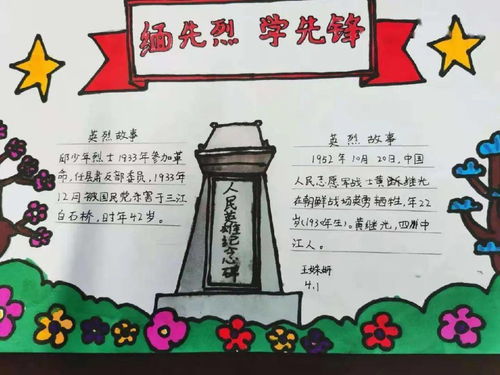 缅先烈 学先锋
英烈故事
邱少年烈士1933年参加革
命,任县委反部委员,1933年
12月被国民党杀害于三江
白石桥,时年42岁。
人民英雄纪念碑
英烈故事
1952年10月20日,中国
人民志愿军战士黄继光
在朝鲜战场英勇牺牲,年22
岁(1930年生)。黄继光,四川中
江人。
4.1